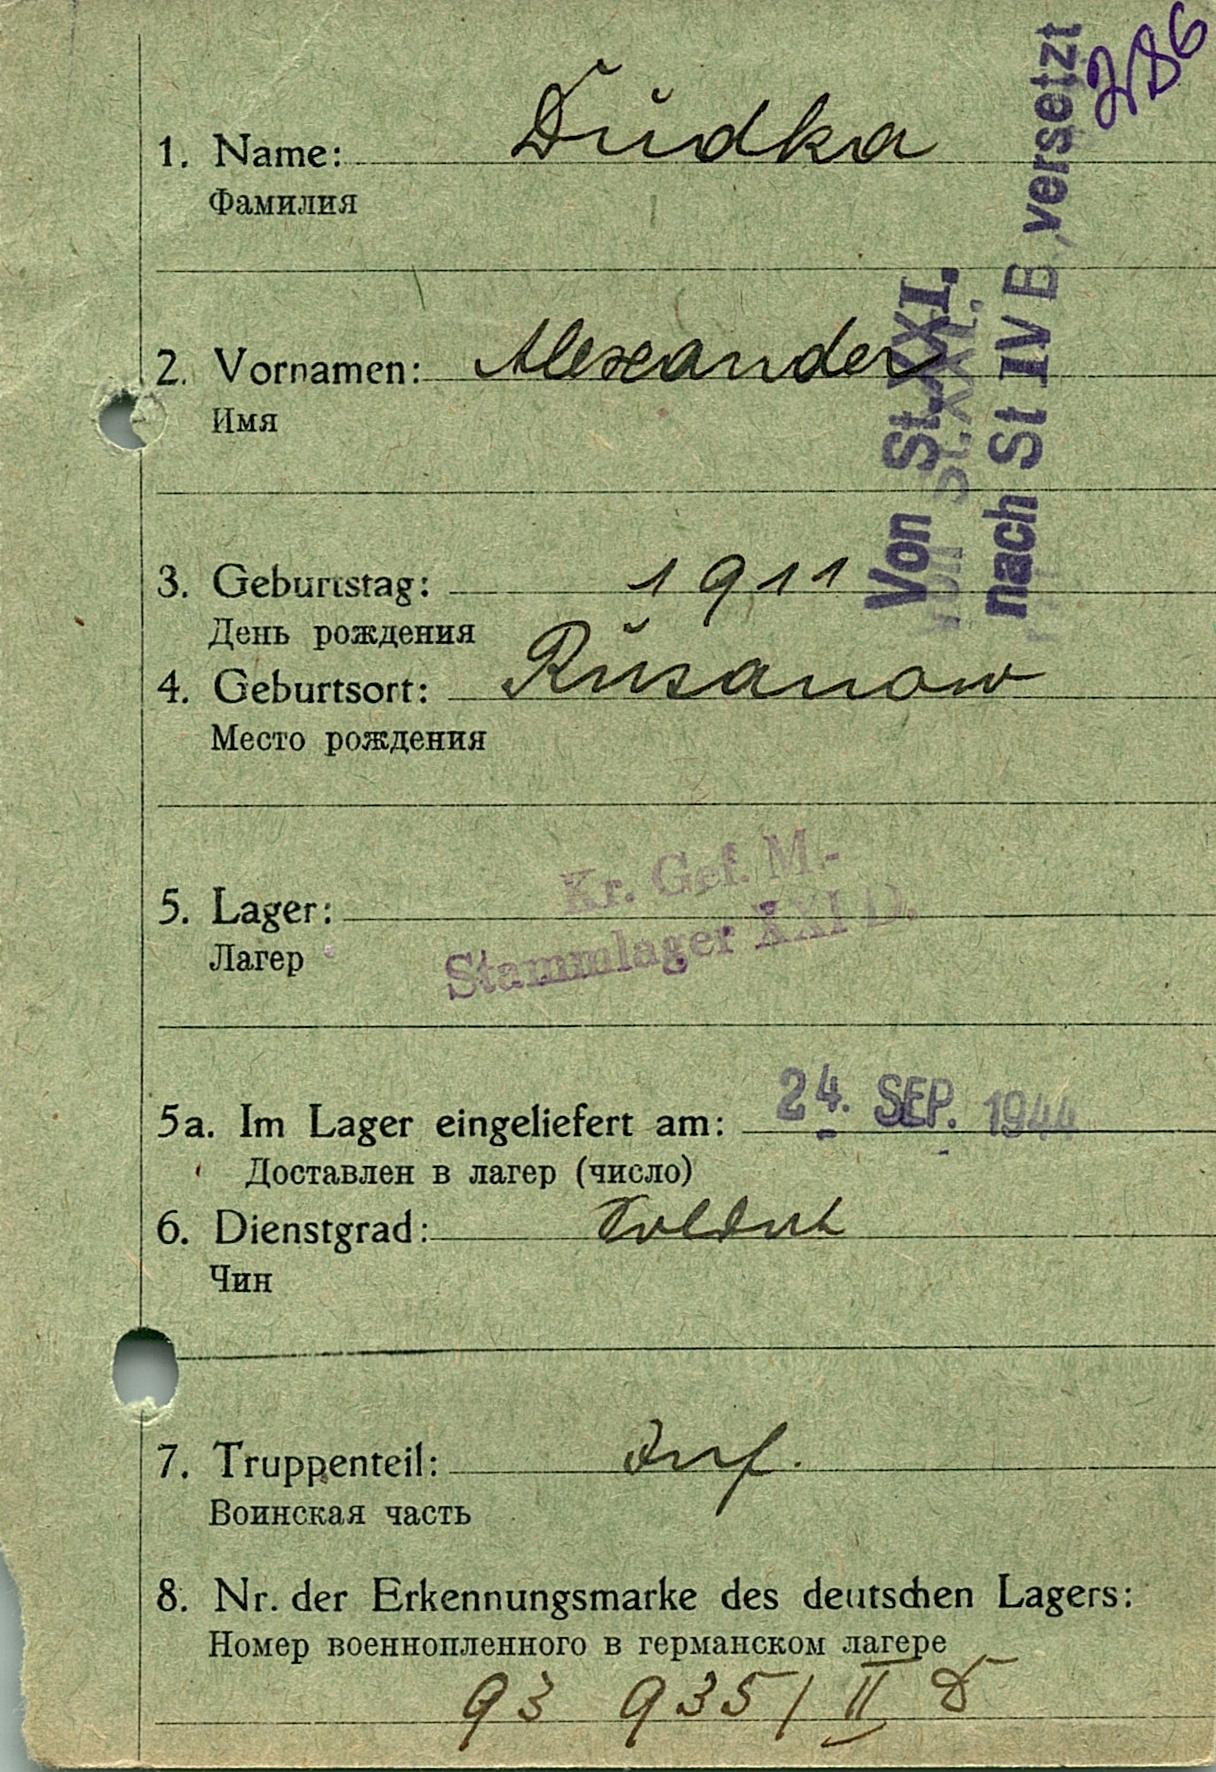 286
1. Name: Dudka
Фамилия
2. Vornamen: Alexander
Имя
Von St. XXI.
nach St IV B versetzt
3. Geburtstag: 1911
День рождения
4. Geburtsort: Rusanow
Место рождения
5. Lager: Kr. Gef. M.-
Stammlager XXI D.
Лагер
5a. Im Lager eingeliefert am: 24. SEP. 1944
Доставлен в лагер (число)
6. Dienstgrad: Soldat
Чин
7. Truppenteil: Inf.
Воинская часть
8. Nr. der Erkennungsmarke des deutschen Lagers:
Номер военнопленного в германском лагере
93 935 / II D